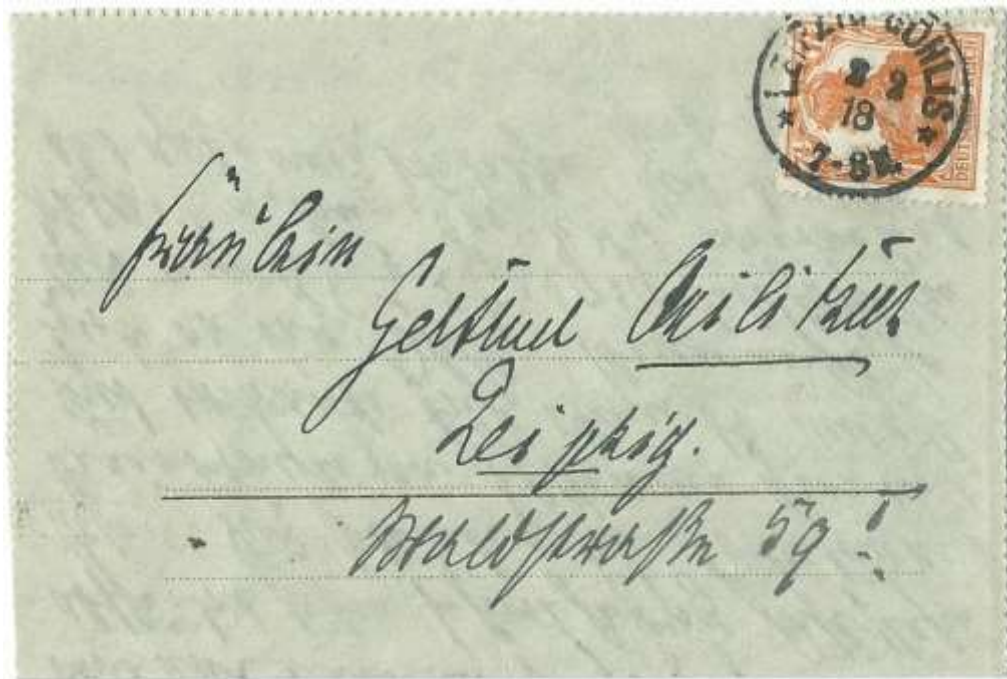 LEIPZIG-GOHLIS
2 2
18
7-8N.
DEUTSCHES REICH
Fräulein
Gertrud
Leipzig.
Waldstraße 59 I